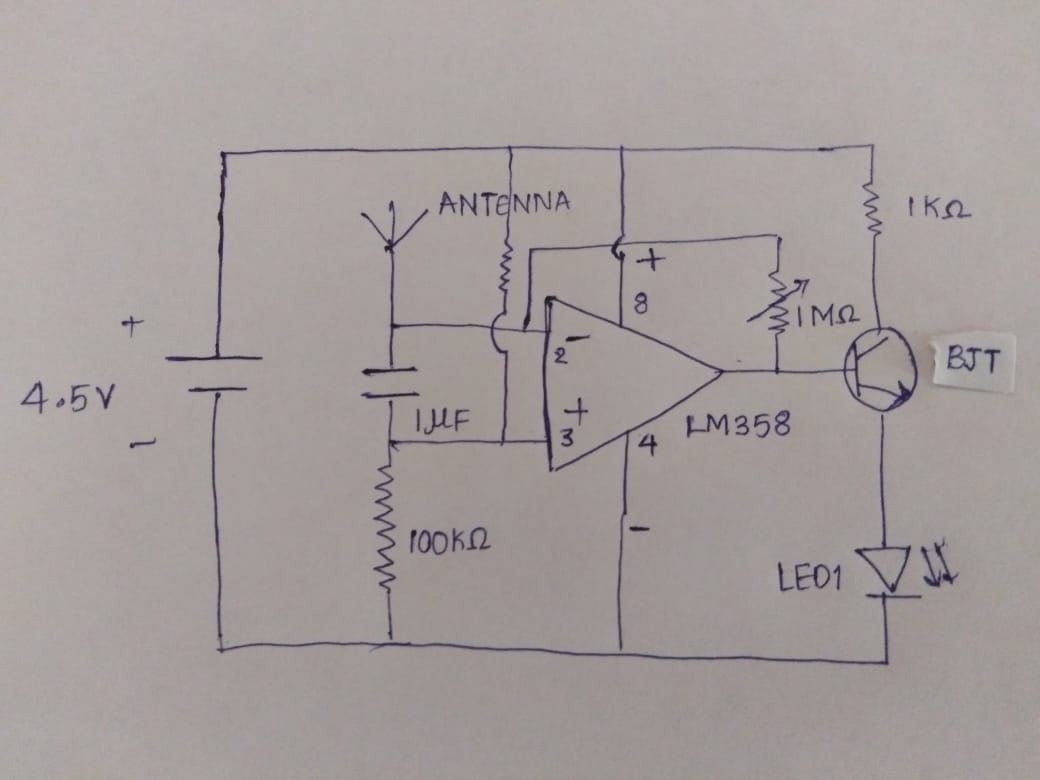 ANTENNA
1KΩ
+
8
1MΩ
+
4.5V
-
2
-
BJT
1µF
+
3
4
LM358
-
100KΩ
LED1